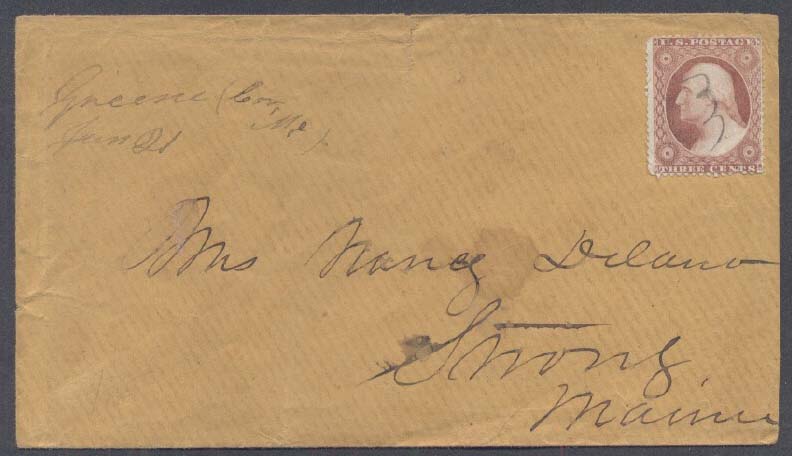 U.S. POSTAGE
3
THREE CENTS
Greene (Cor,
Me).
Jan 21
Mrs Nancy Delano
Strong
Maine